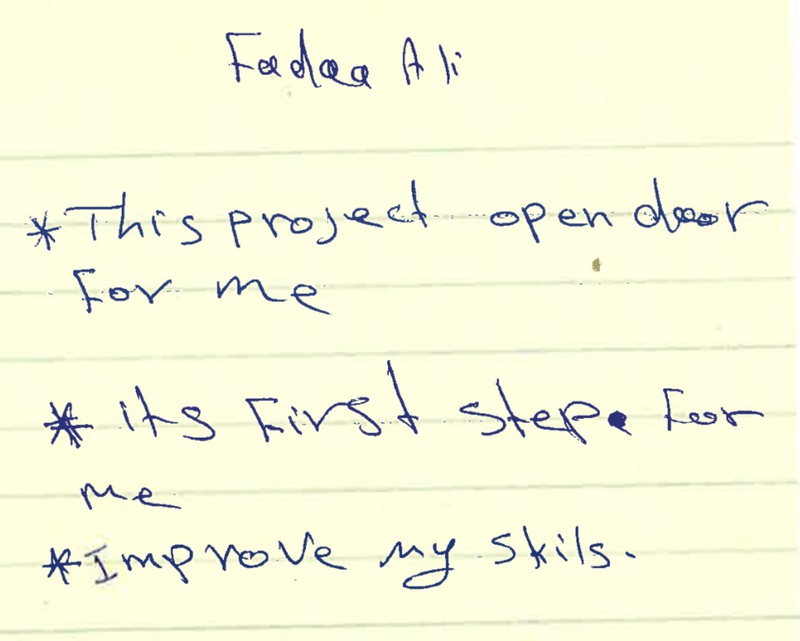 Fadaa Ali
* This project open door
For me
* its First step. For
me
* Improve my skils.